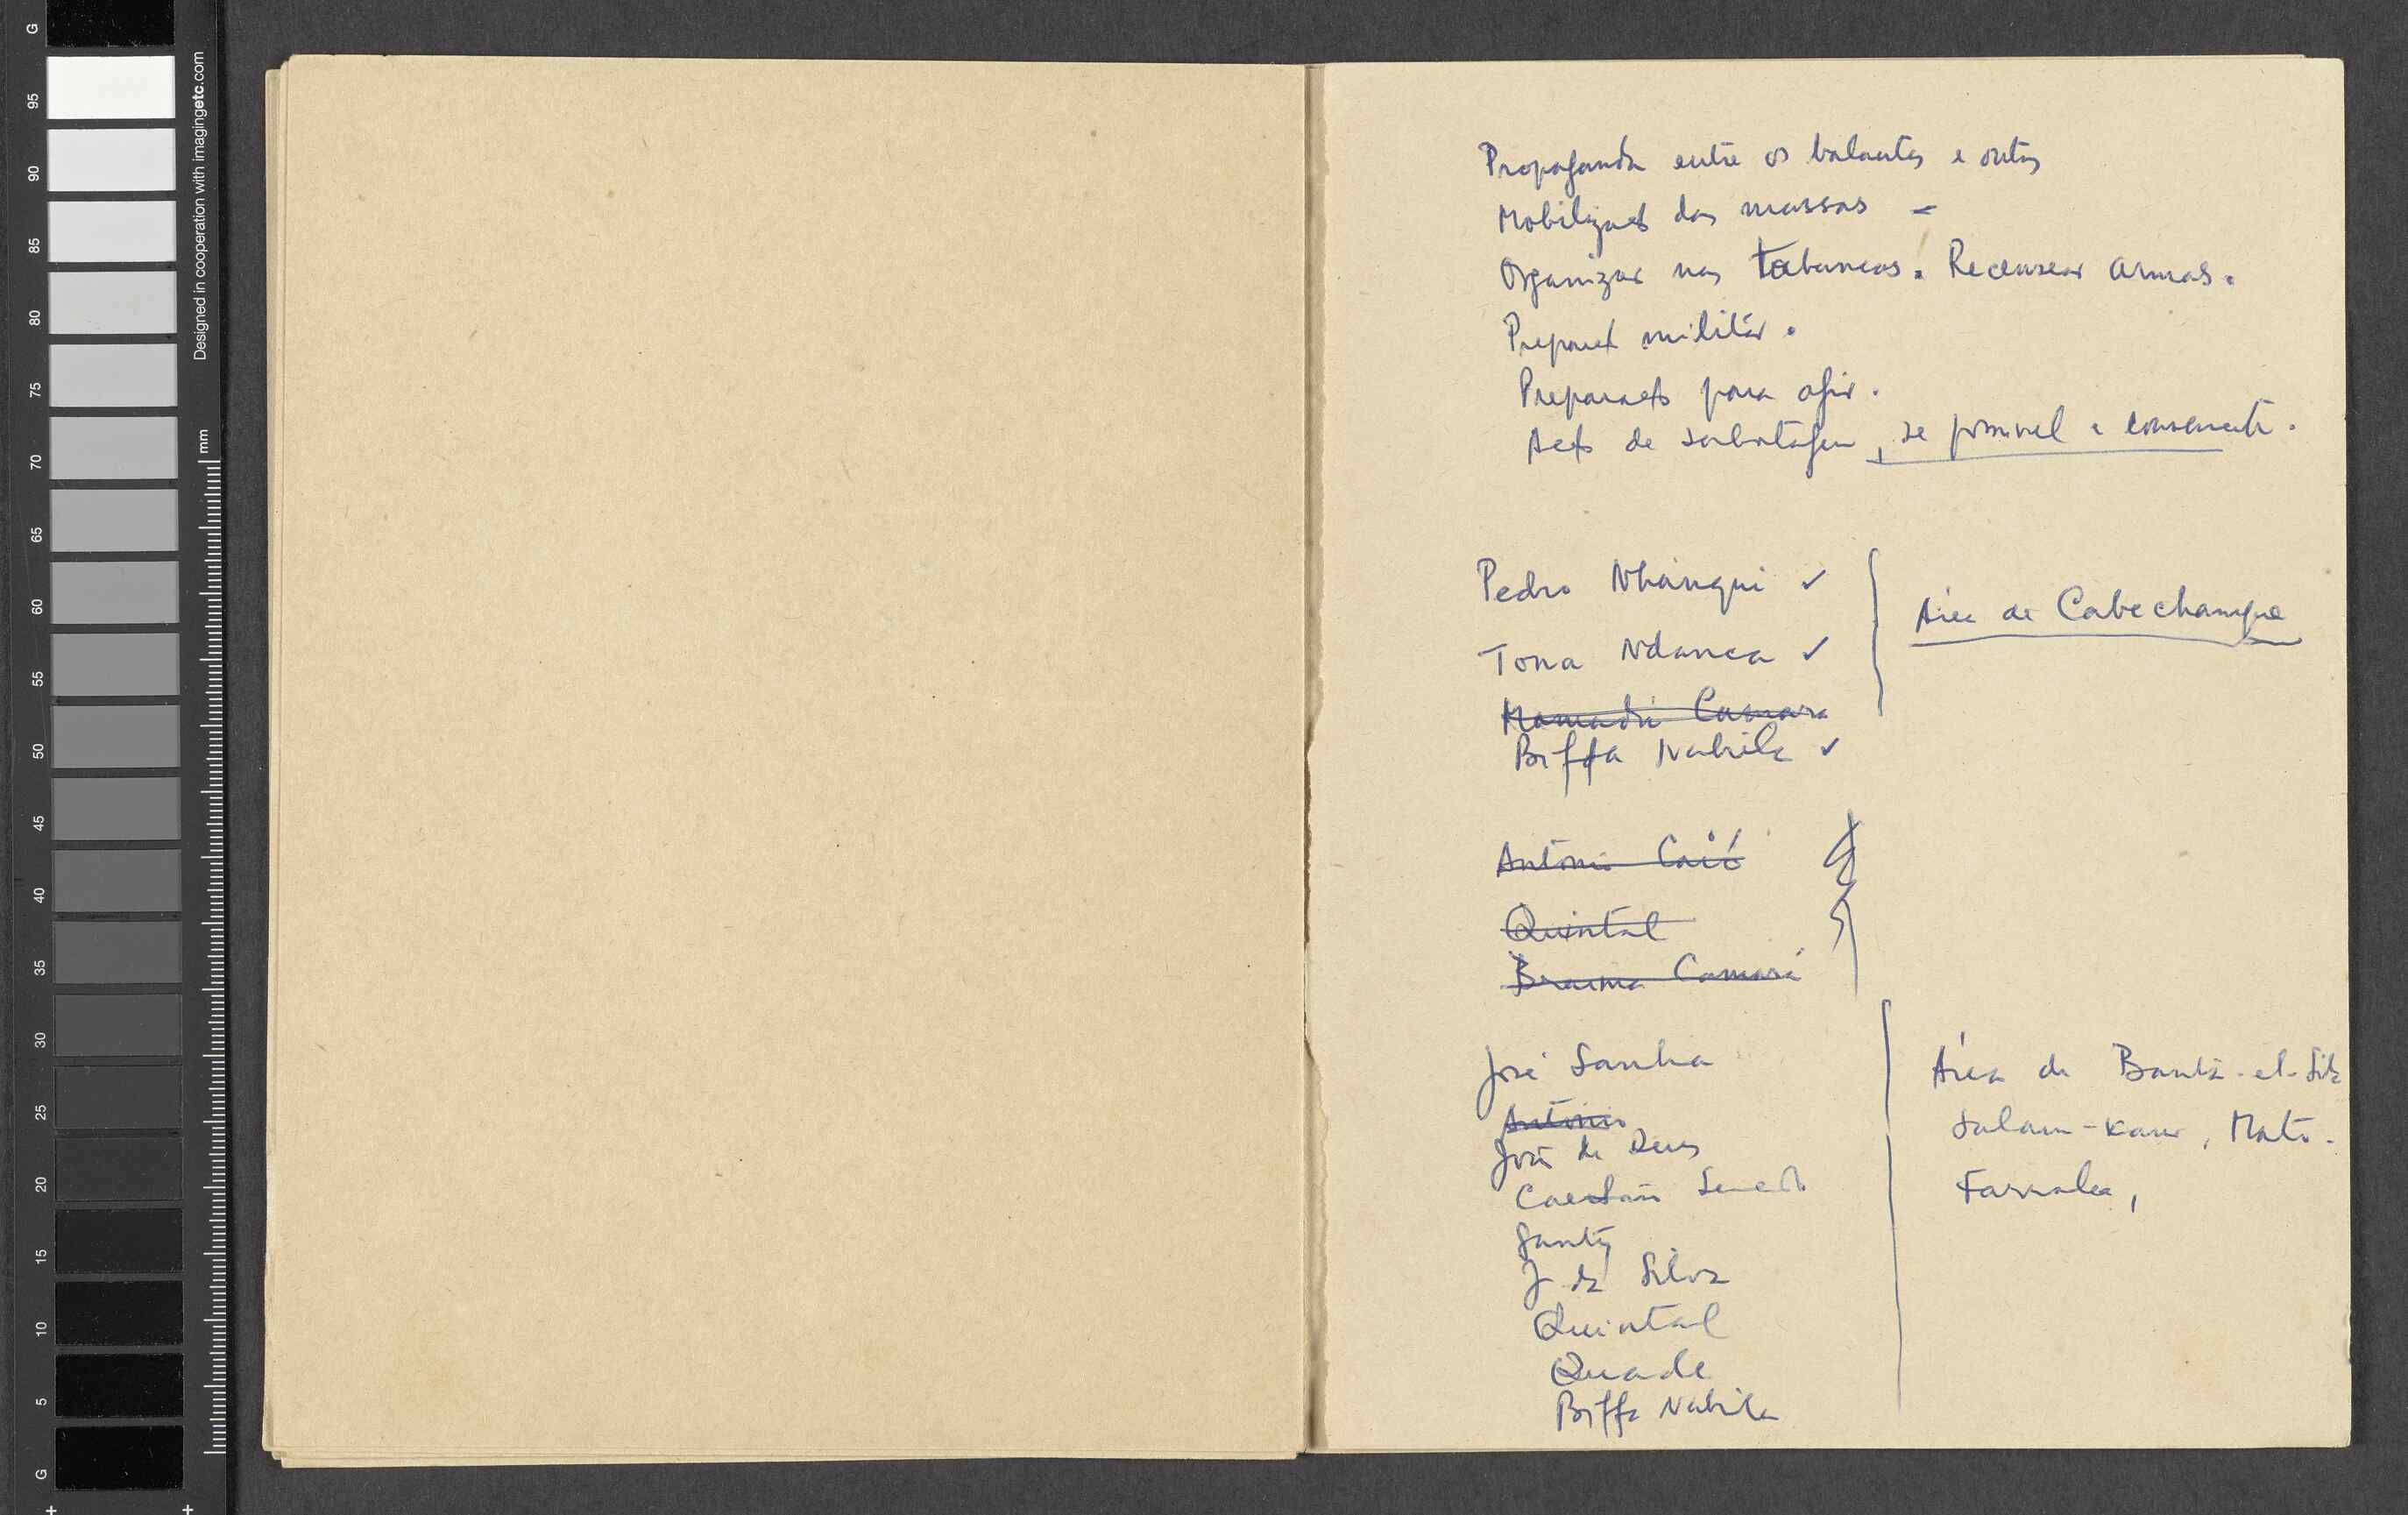 G
95
90
85
80
75
70
65
60
55
50
45
40
35
30
25
20
15
10
5
G
Designed in cooperation with imagingetc.com
mm
Propaganda entre os balantas e outros
Mobilização das massas –
Organizar nas tabancas. Recensear armas.
militar.
Preparação para agir.
de sabotagem, se possível e
Pedro Nhanqui ✓
Tona Ndanca ✓
Área de Cabechanque
Mamadú Camara
Biffa Nabila ✓
António Caió
Quintal
Braima Camará
José Sanha
António
João de Deus
Caetano Semedo
Santy
J da Silva
Quintal
Quade
Biffa Nabila
Área de Bantã-el-Silá
Salam-Kam, Mato-
Farroba,